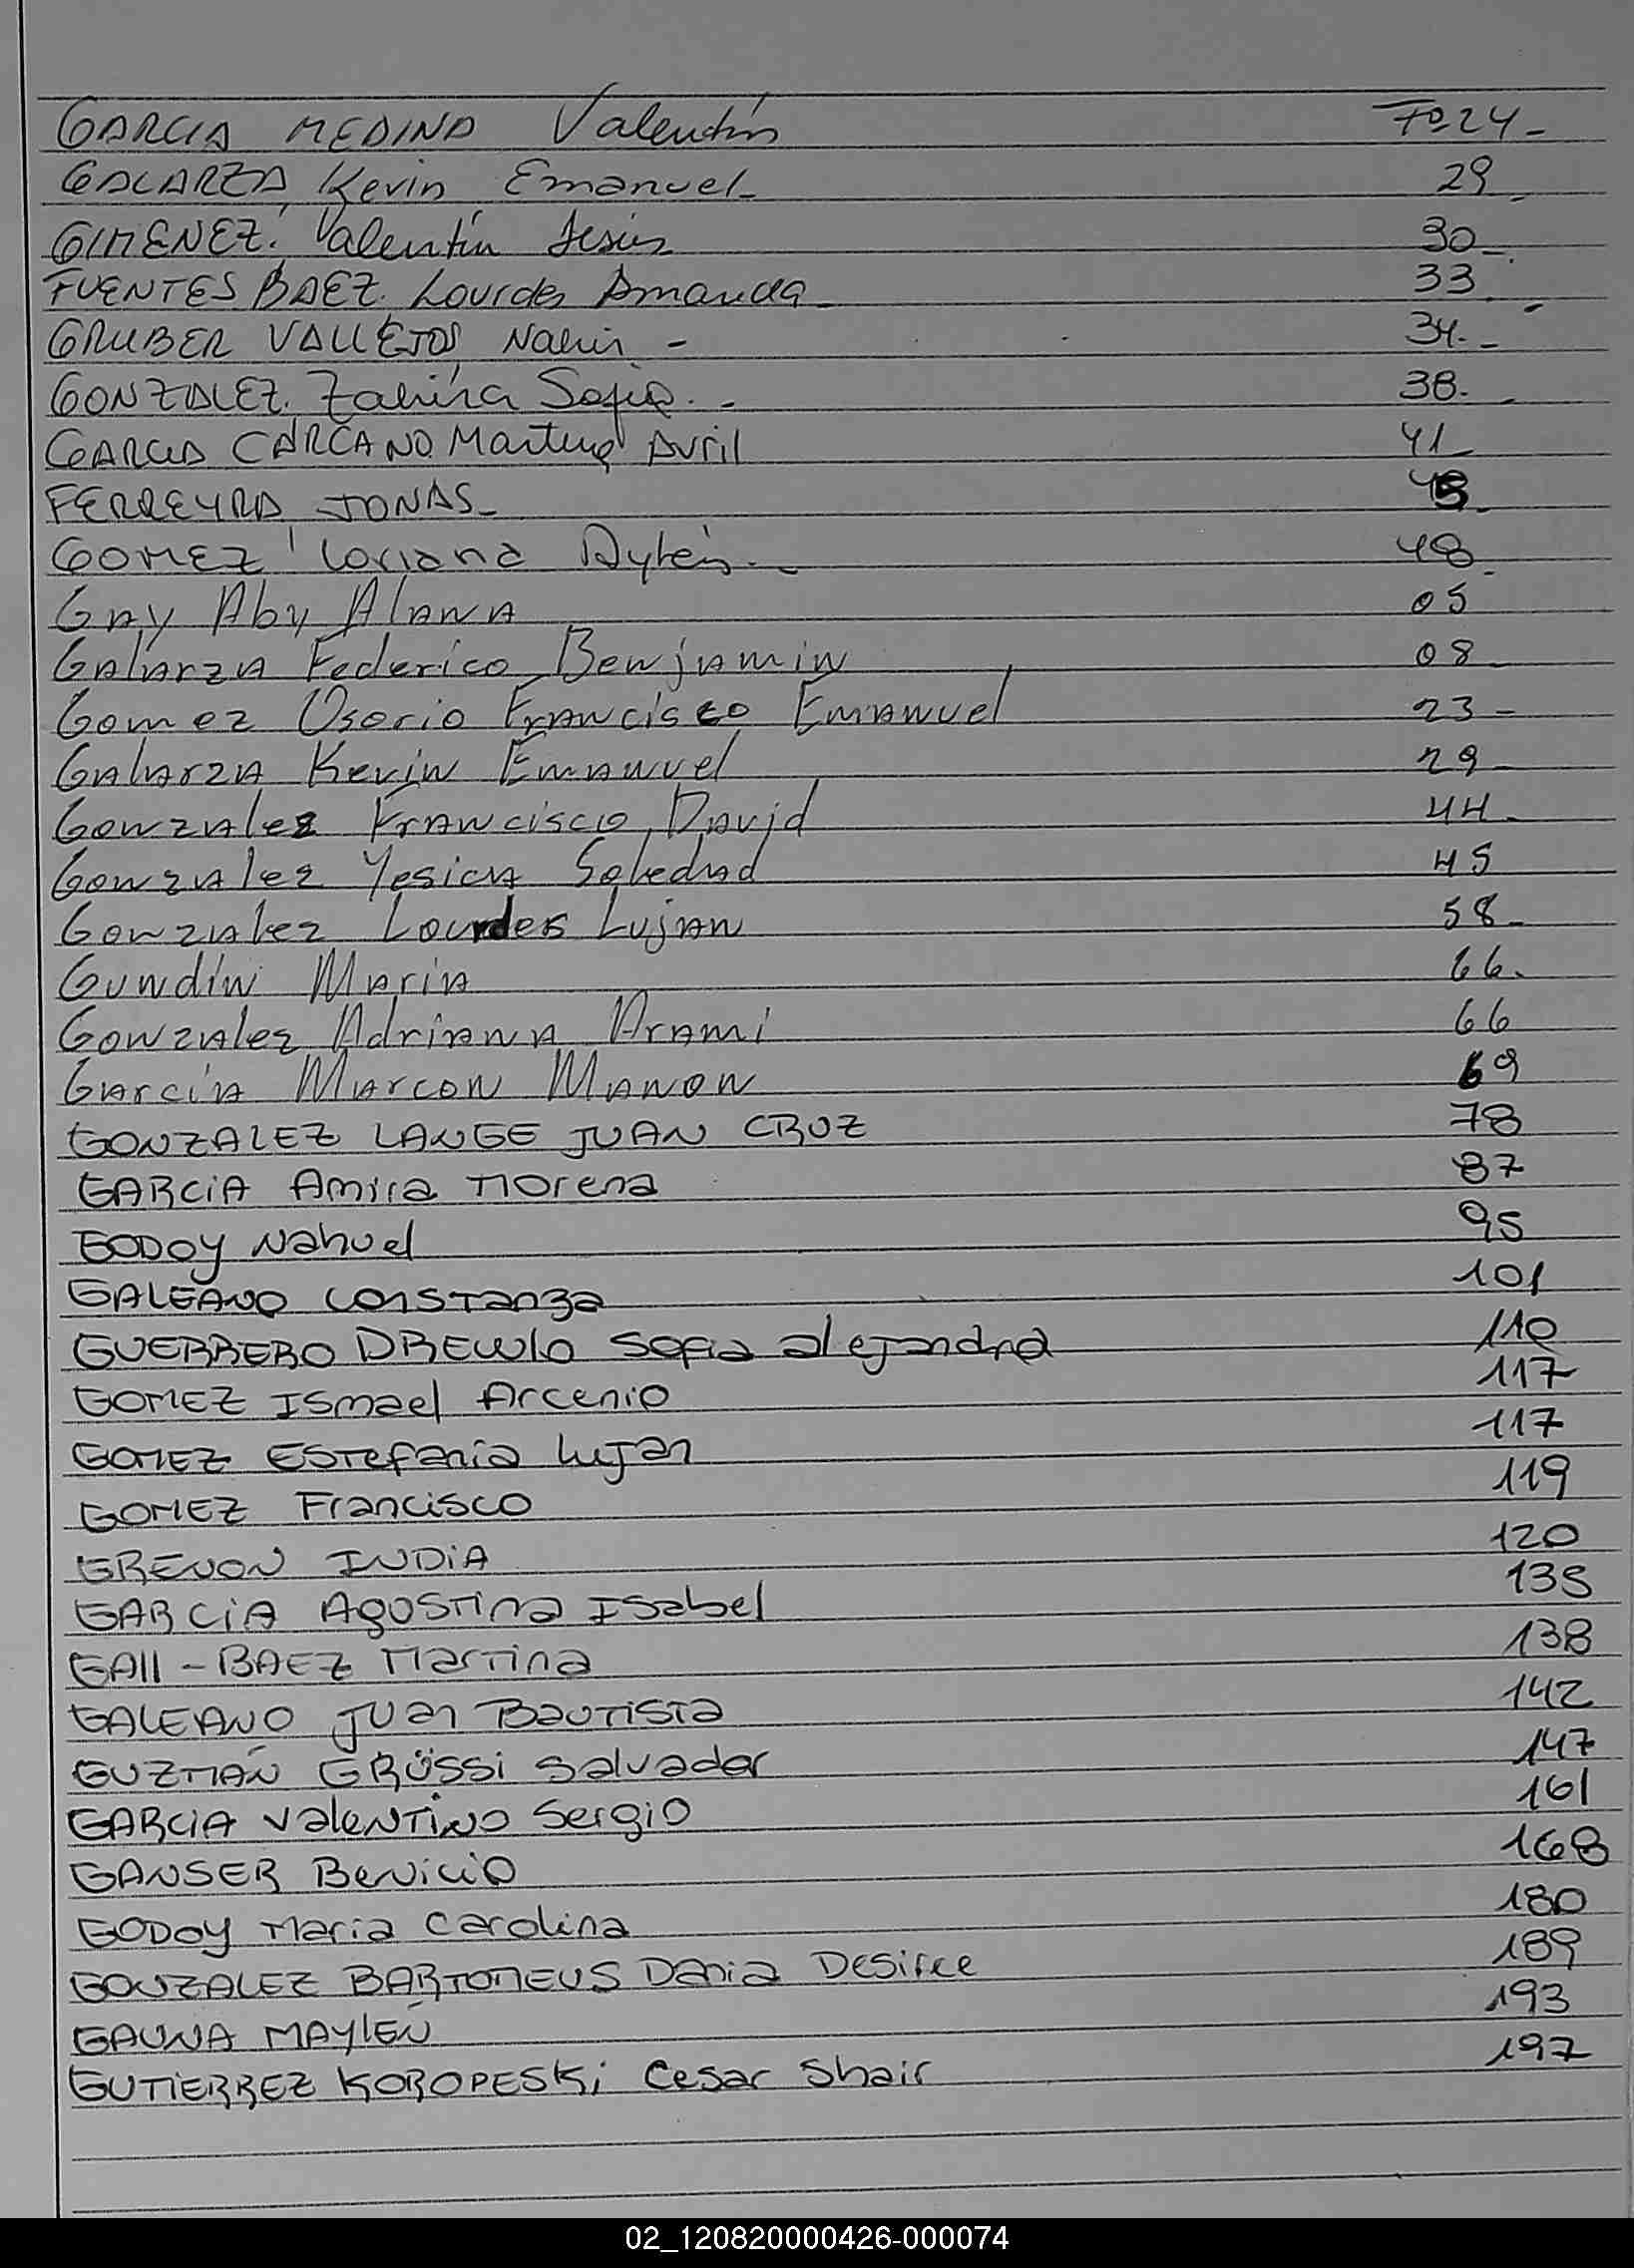 GARCIA MEDINA Valentín Fº 24-
GALARZA, Kevin Emanuel- 29-
GIMENEZ. Valentín Jesús 30-
FUENTES BAEZ. Lourdes Amanda- 33-
GRUBER VALLEJOS Nahir - 34.-
GONZALEZ. Zahira Sofia.- 38.-
GARCIA CARCANO Martina Avril 41
FERREYRA JONAS- 45-
GOMEZ Loriana Aylén.- 48-
GAY Aby Alana 05
Galarza Federico Benjamin 08-
Gomez Osorio Francisco Emanuel 23-
Galarza Kevin Emanuel 29-
Gonzalez Francisco David 44-
Gonzalez Yesica Soledad 45
Gonzalez Lourdes Lujan 58-
Gundin Maria 66.
Gonzalez Adriana Arami 66
García Marcon Manon 69
GONZALEZ LANGE JUAN CRUZ 78
GARCIA Amira Morena 87
GODOY Nahuel 95
GALEANO Constanza 101
GUERRERO DREWLO Sofia alejandra 110
GOMEZ Ismael Arcenio 117
GOMEZ Estefania Lujan 117
GOMEZ Francisco 119
GRENON INDIA 120
GARCIA Agostina Isabel 135
GALL-BAEZ Martina 138
GALEANO Juan Bautista 142
GUZMÁN GRÜSSI Salvador 147
GARCIA Valentino Sergio 161
GANSER Benicio 168
GODOY Maria Carolina 180
GONZALEZ BARTOMEUS Dania Desiree 189
GAUNA MAYLEN 193
GUTIERREZ KOROPESKI Cesar Shair 197
02_120820000426-000074